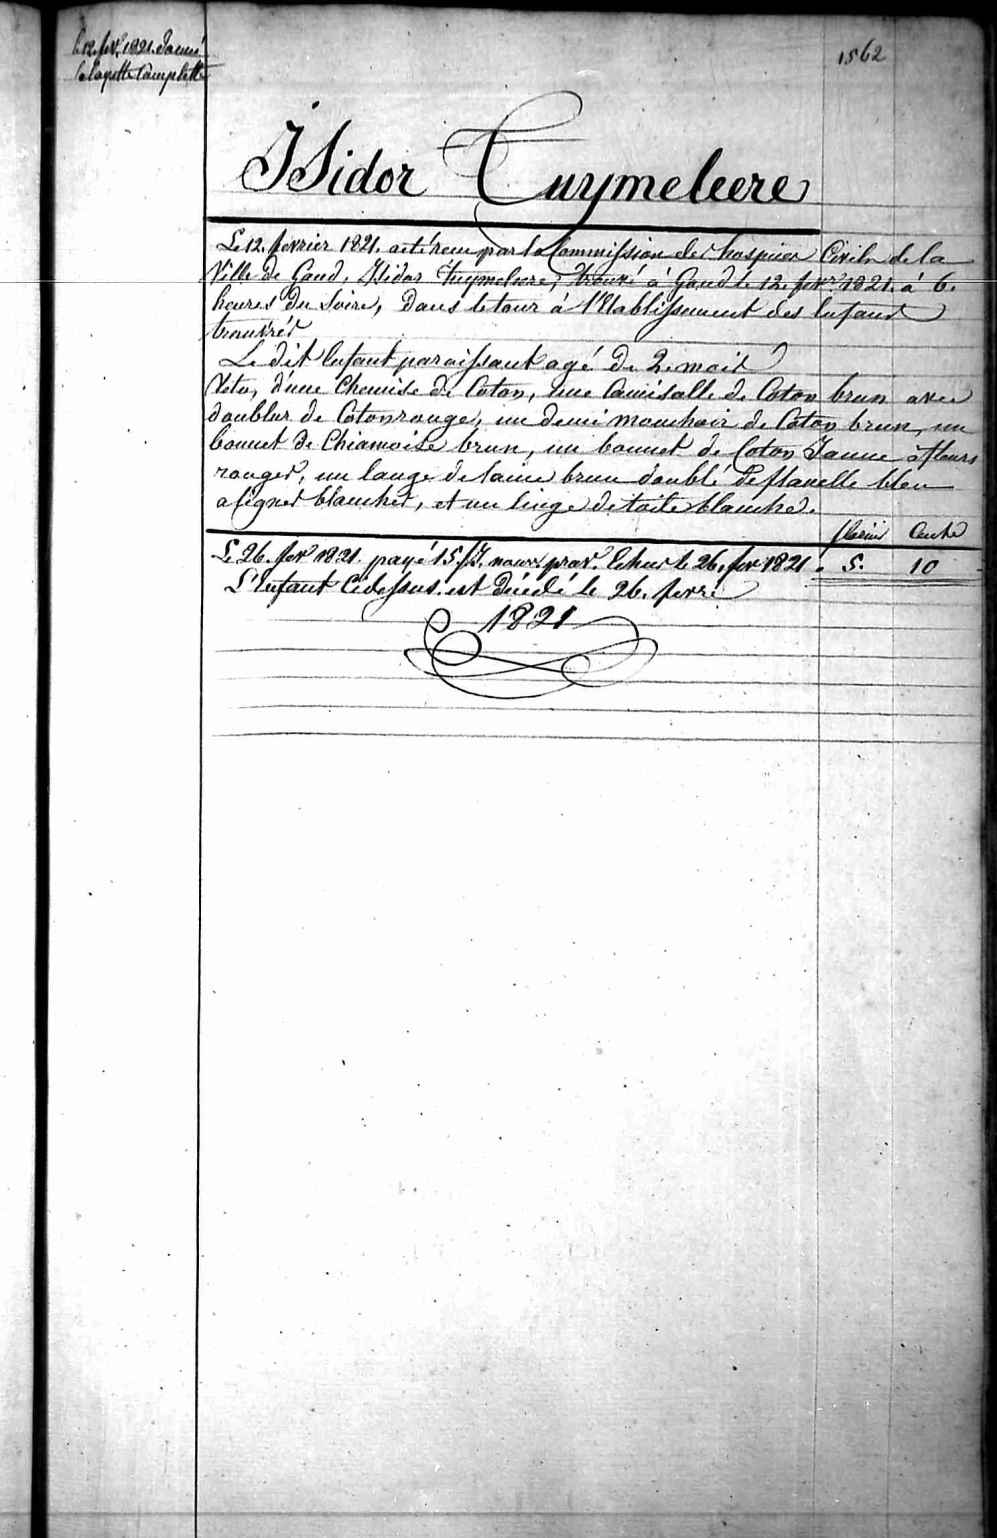 le 12 fevr. 1821. Donné
la layette Complette
1562
Isidor Tuymeleere
Le 12. fevrier 1821. a eté recu par la Commission des hospices Civils de la
Ville de Gand, Isidor Tuymeleere, trouvé à Gand le 12 fevr. 1821. à 6.
heures du Soire, dans le tour à l'Etablissement des Enfans
trouvés
Le dit Enfant paraissant agé de 2. mois
Vetu, d'une Chemise de Coton, une Camisolle de Coton brun avec
doublur de Coton rouge, un demi mouchoir de Coton brun, un
bonnet de Chiamoise brun, un bonnet de Coton Jaune à fleurs
rouges, un lange de laine brun doublé de flanelle bleu
a lignes blanches, et un linge de toile blanche.
florins Cents
Le 26. fevr 1821. payé 15. nour. prov. Echus le 26. fevr 1821. 5. 10
L'Enfant Cidessus est Décédé le 26. fevr.
1821